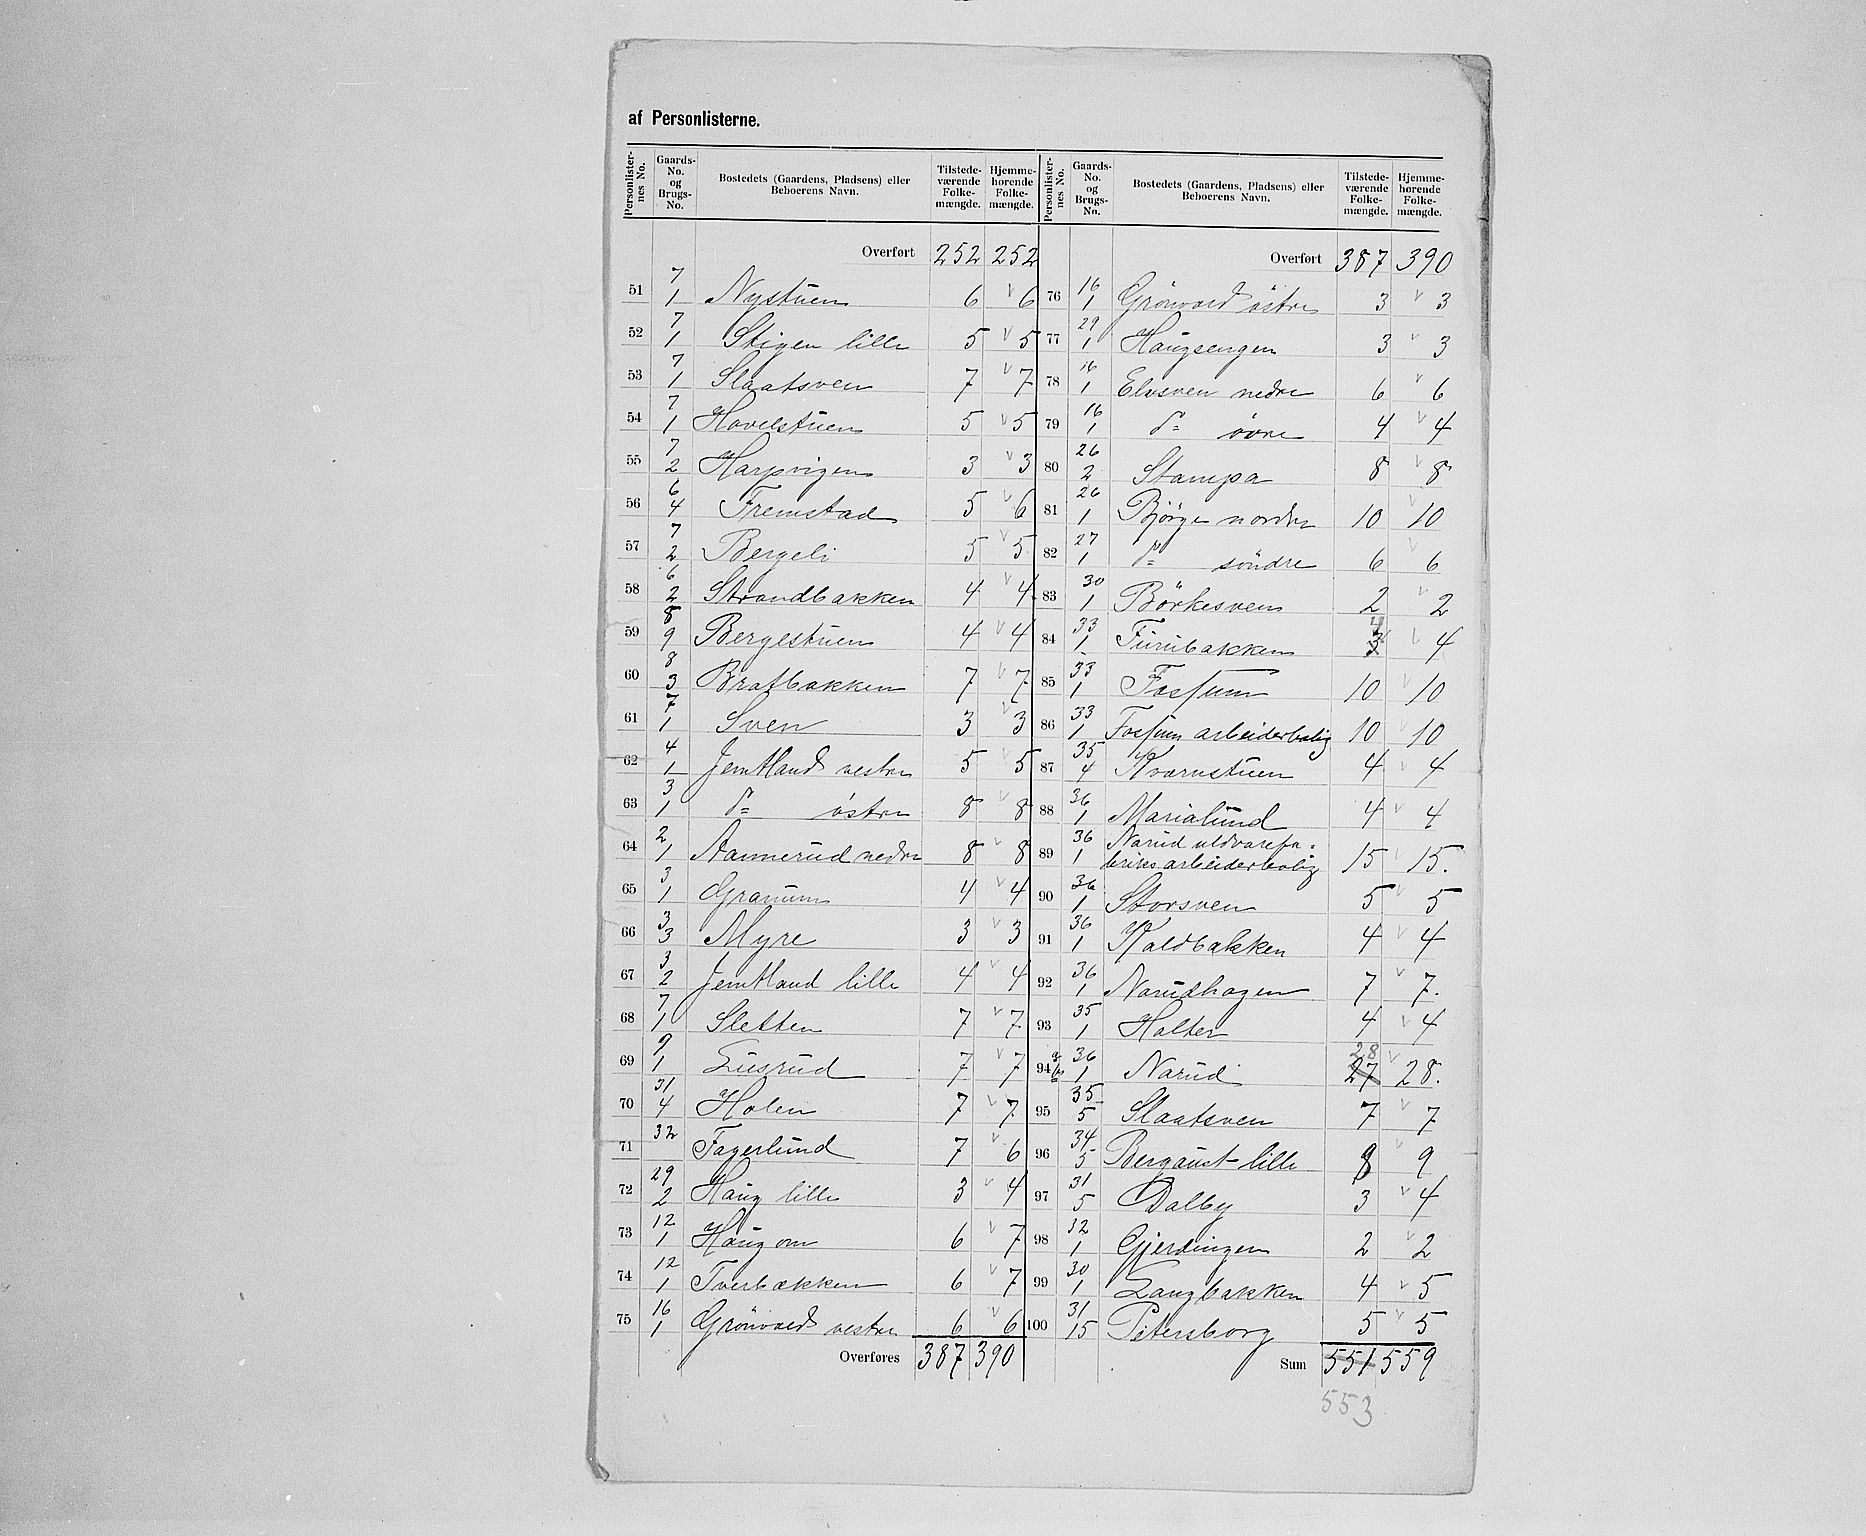 af Personlisterne.
Personlister-nes No. | Gaards-No. og Brugs-No. | Bostedets (Gaardens, Pladsens) eller Beboerens Navn. | Tilstede-værende Folke-mængde. | Hjemme-hørende Folke-mængde.
Overført 252 252
51 7/1 Nystuen 6 v 6
52 7/1 Stigen lille 5 v 5
53 7/1 Slaatsven 7 v 7
54 7/1 Hovelstuen 5 v 5
55 7/2 Harpvigen 3 v 3
56 6/4 Fremstad 5 v 6
57 7/2 Bergeli 5 v 5
58 6/2 Strandbakken 4 v 4
59 8/9 Bergestuen 4 v 4
60 8/3 Bratbakken 7 v 7
61 7/1 Sven 3 v 3
62 4/1 Jemtland vestre 5 v 5
63 3/1 do östre 8 v 8
64 2/1 Aannerud nedre 8 v 8
65 3/1 Granum 4 v 4
66 3/3 Myre 3 v 3
67 3/2 Jemtland lille 4 v 4
68 7/1 Sletten 7 v 7
69 9/1 Lusrud 7 v 7
70 31/4 Holen 7 v 7
71 32 Fagerlund 7 v 6
72 29/2 Haug lille 3 v 4
73 12/1 Haugom 6 v 7
74 12/1 Tverbakken 6 v 7
75 16/1 Grönvold vestre 6 v 6
Overføres 387 390
Personlister-nes No. | Gaards-No. og Brugs-No. | Bostedets (Gaardens, Pladsens) eller Beboerens Navn. | Tilstede-værende Folke-mængde. | Hjemme-hørende Folke-mængde.
Overført 387 390
76 16/1 Grönvold östre 3 v 3
77 29/1 Haugsengen 3 v 3
78 16/1 Elvsven nedre 6 v 6
79 16/1 do övre 4 v 4
80 26/2 Stampa 8 v 8
81 26/1 Björge nordre 10 v 10
82 27/1 do söndre 6 v 6
83 30/1 Börkesven 2 v 2
84 33/1 Furubakken 3 4 v 4
85 33/1 Fossum 10 v 10
86 33/1 Fossum arbeiderbolig 10 v 10
87 35/4 Kvarnstuen 4 v 4
88 36/1 Marialund 4 v 4
89 36/1 Narud uldvarefa-
brikes arbeiderbolig 15 v 15.
90 36/1 Storsven 5 v 5
91 36/1 Kaldbakken 4 v 4
92 36/1 Narudhagen 7 v 7.
93 35/1 Holter 4 v 4
94 a b 36/1 Narud 27 28 v 28.
95 35/5 Slaatsven 7 v 7
96 34/5 Bergaust lille 8 v 9
97 31/5 Dalby 3 v 4
98 32/1 Gjerdingen 2 v 2
99 30/1 Langbakken 4 v 5
100 31/15 Petersborg 5 v 5
Sum 551 559
553